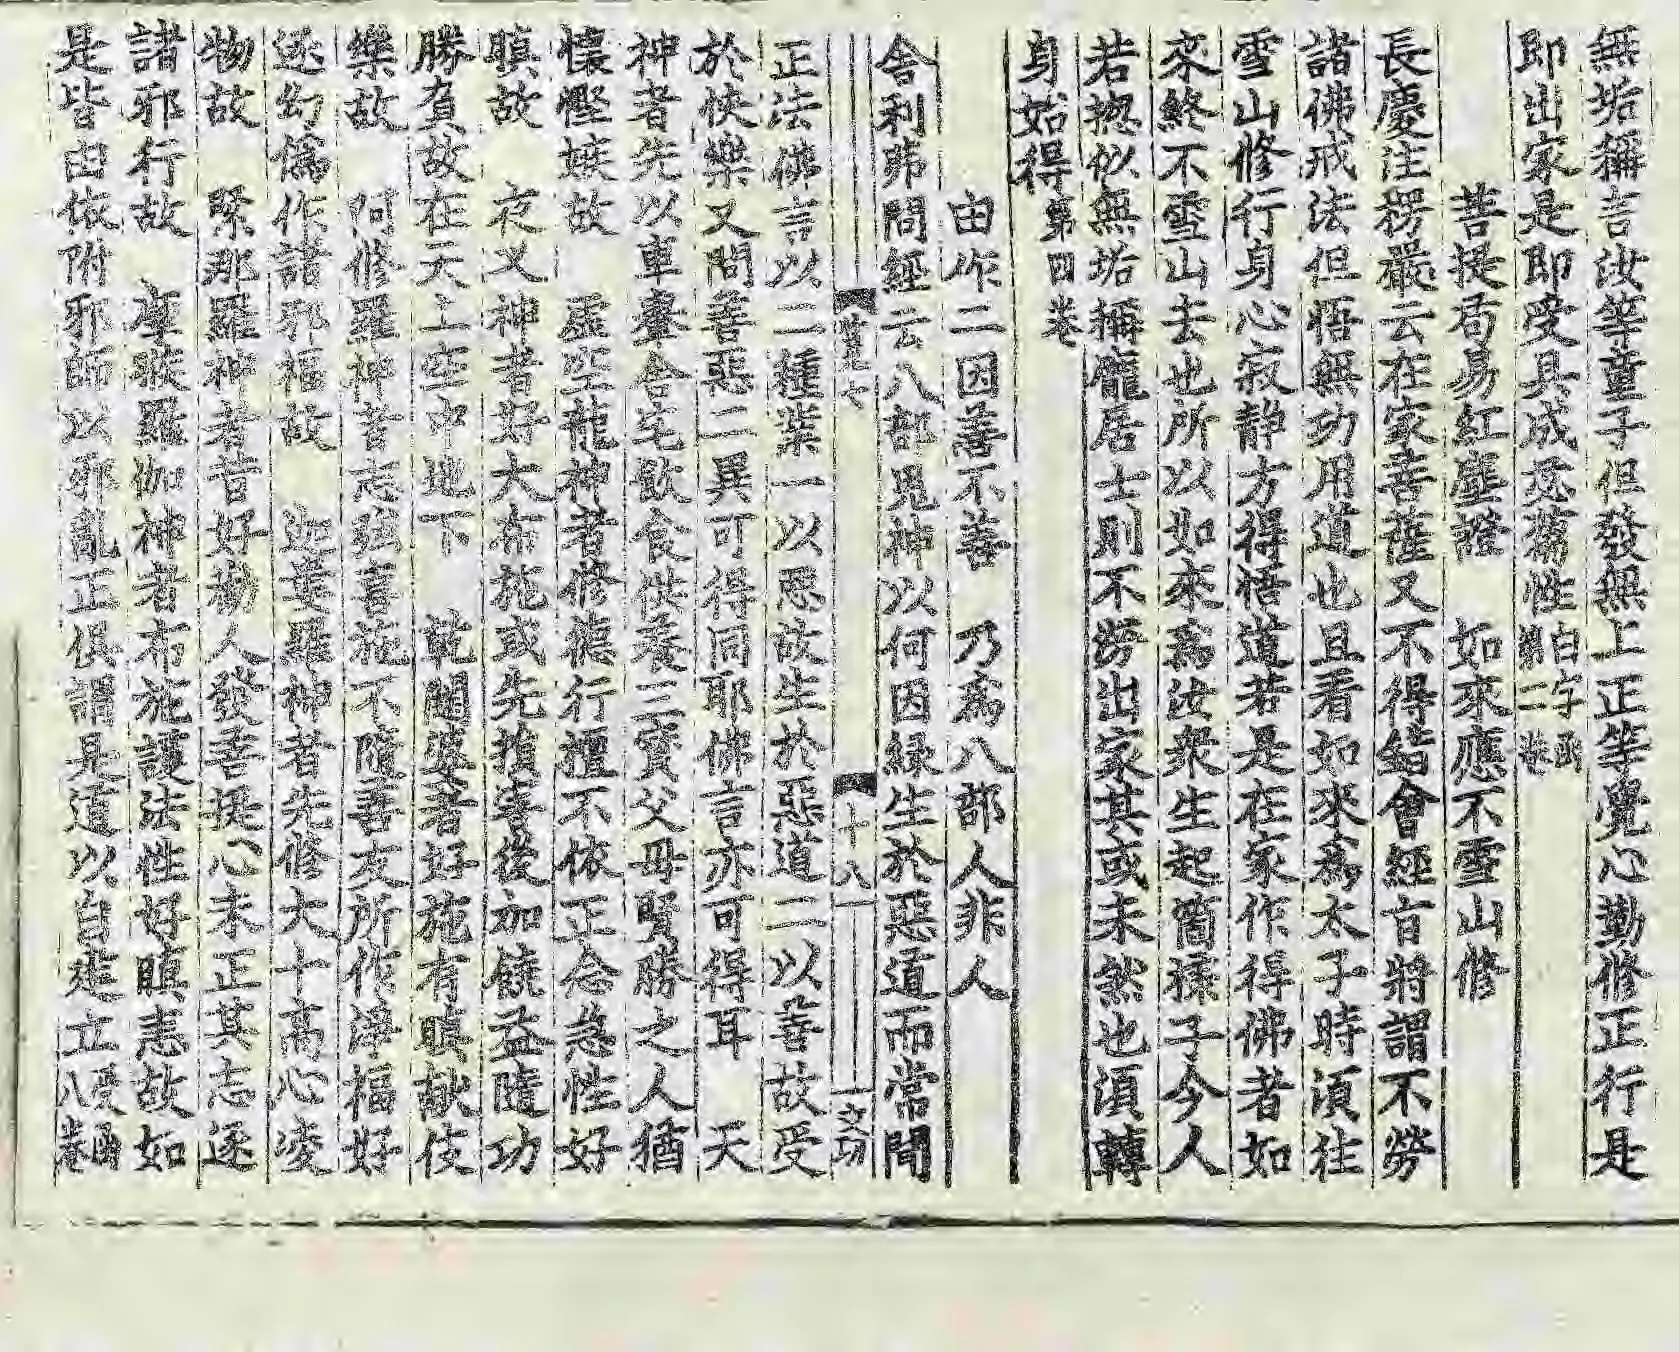 無垢稱言汝等童子但發無上正等覺心勤修正行是
即出家是即受具成苾蒭性白字函第二卷
菩提局易紅塵證　如來應不雪山修
長慶注楞嚴云在家菩薩又不得錯會經旨將謂不勞
諸佛戒法但悟無功用道也且看如來爲太子時須往
雪山修行身心寂静方得悟道若是在家作得佛者如
來終不雪山去也所以如來爲汝衆生起箇㨾子今人
若揔似無垢稱龐居士則不勞出家其或未然也須轉
身始得第四卷
由作二因善不善　乃爲八部人非人
舍利弗問經云八部鬼神以何因緣生於惡道而常聞
十八
文功
正法佛言以二種業一以惡故生於惡道二以善故受
於快樂又問善惡二異可得同耶佛言亦可得耳　天
神者先以車轝舍宅飲食供養三寳父母賢勝之人猶
懷慳嫉故　虛空龍神者修德行檀不依正念急性好
瞋故　夜叉神者好大布施或先損害後加饒益隨功
勝負故在天上空中地下　乾闥婆者好施有瞋猷伎
樂故　阿修羅神者志强喜施不隨善友所作淨福好
逐幻僞作諸邪福故　迦婁羅神者先修大十高心凌
物故　緊那羅神者昔好勸人發菩提心未正其志逐
諸邪行故　摩睺羅伽神者布施護法性好瞋恚故如
是皆由依附邪師以邪亂正俱謂是道以自建立受函八卷